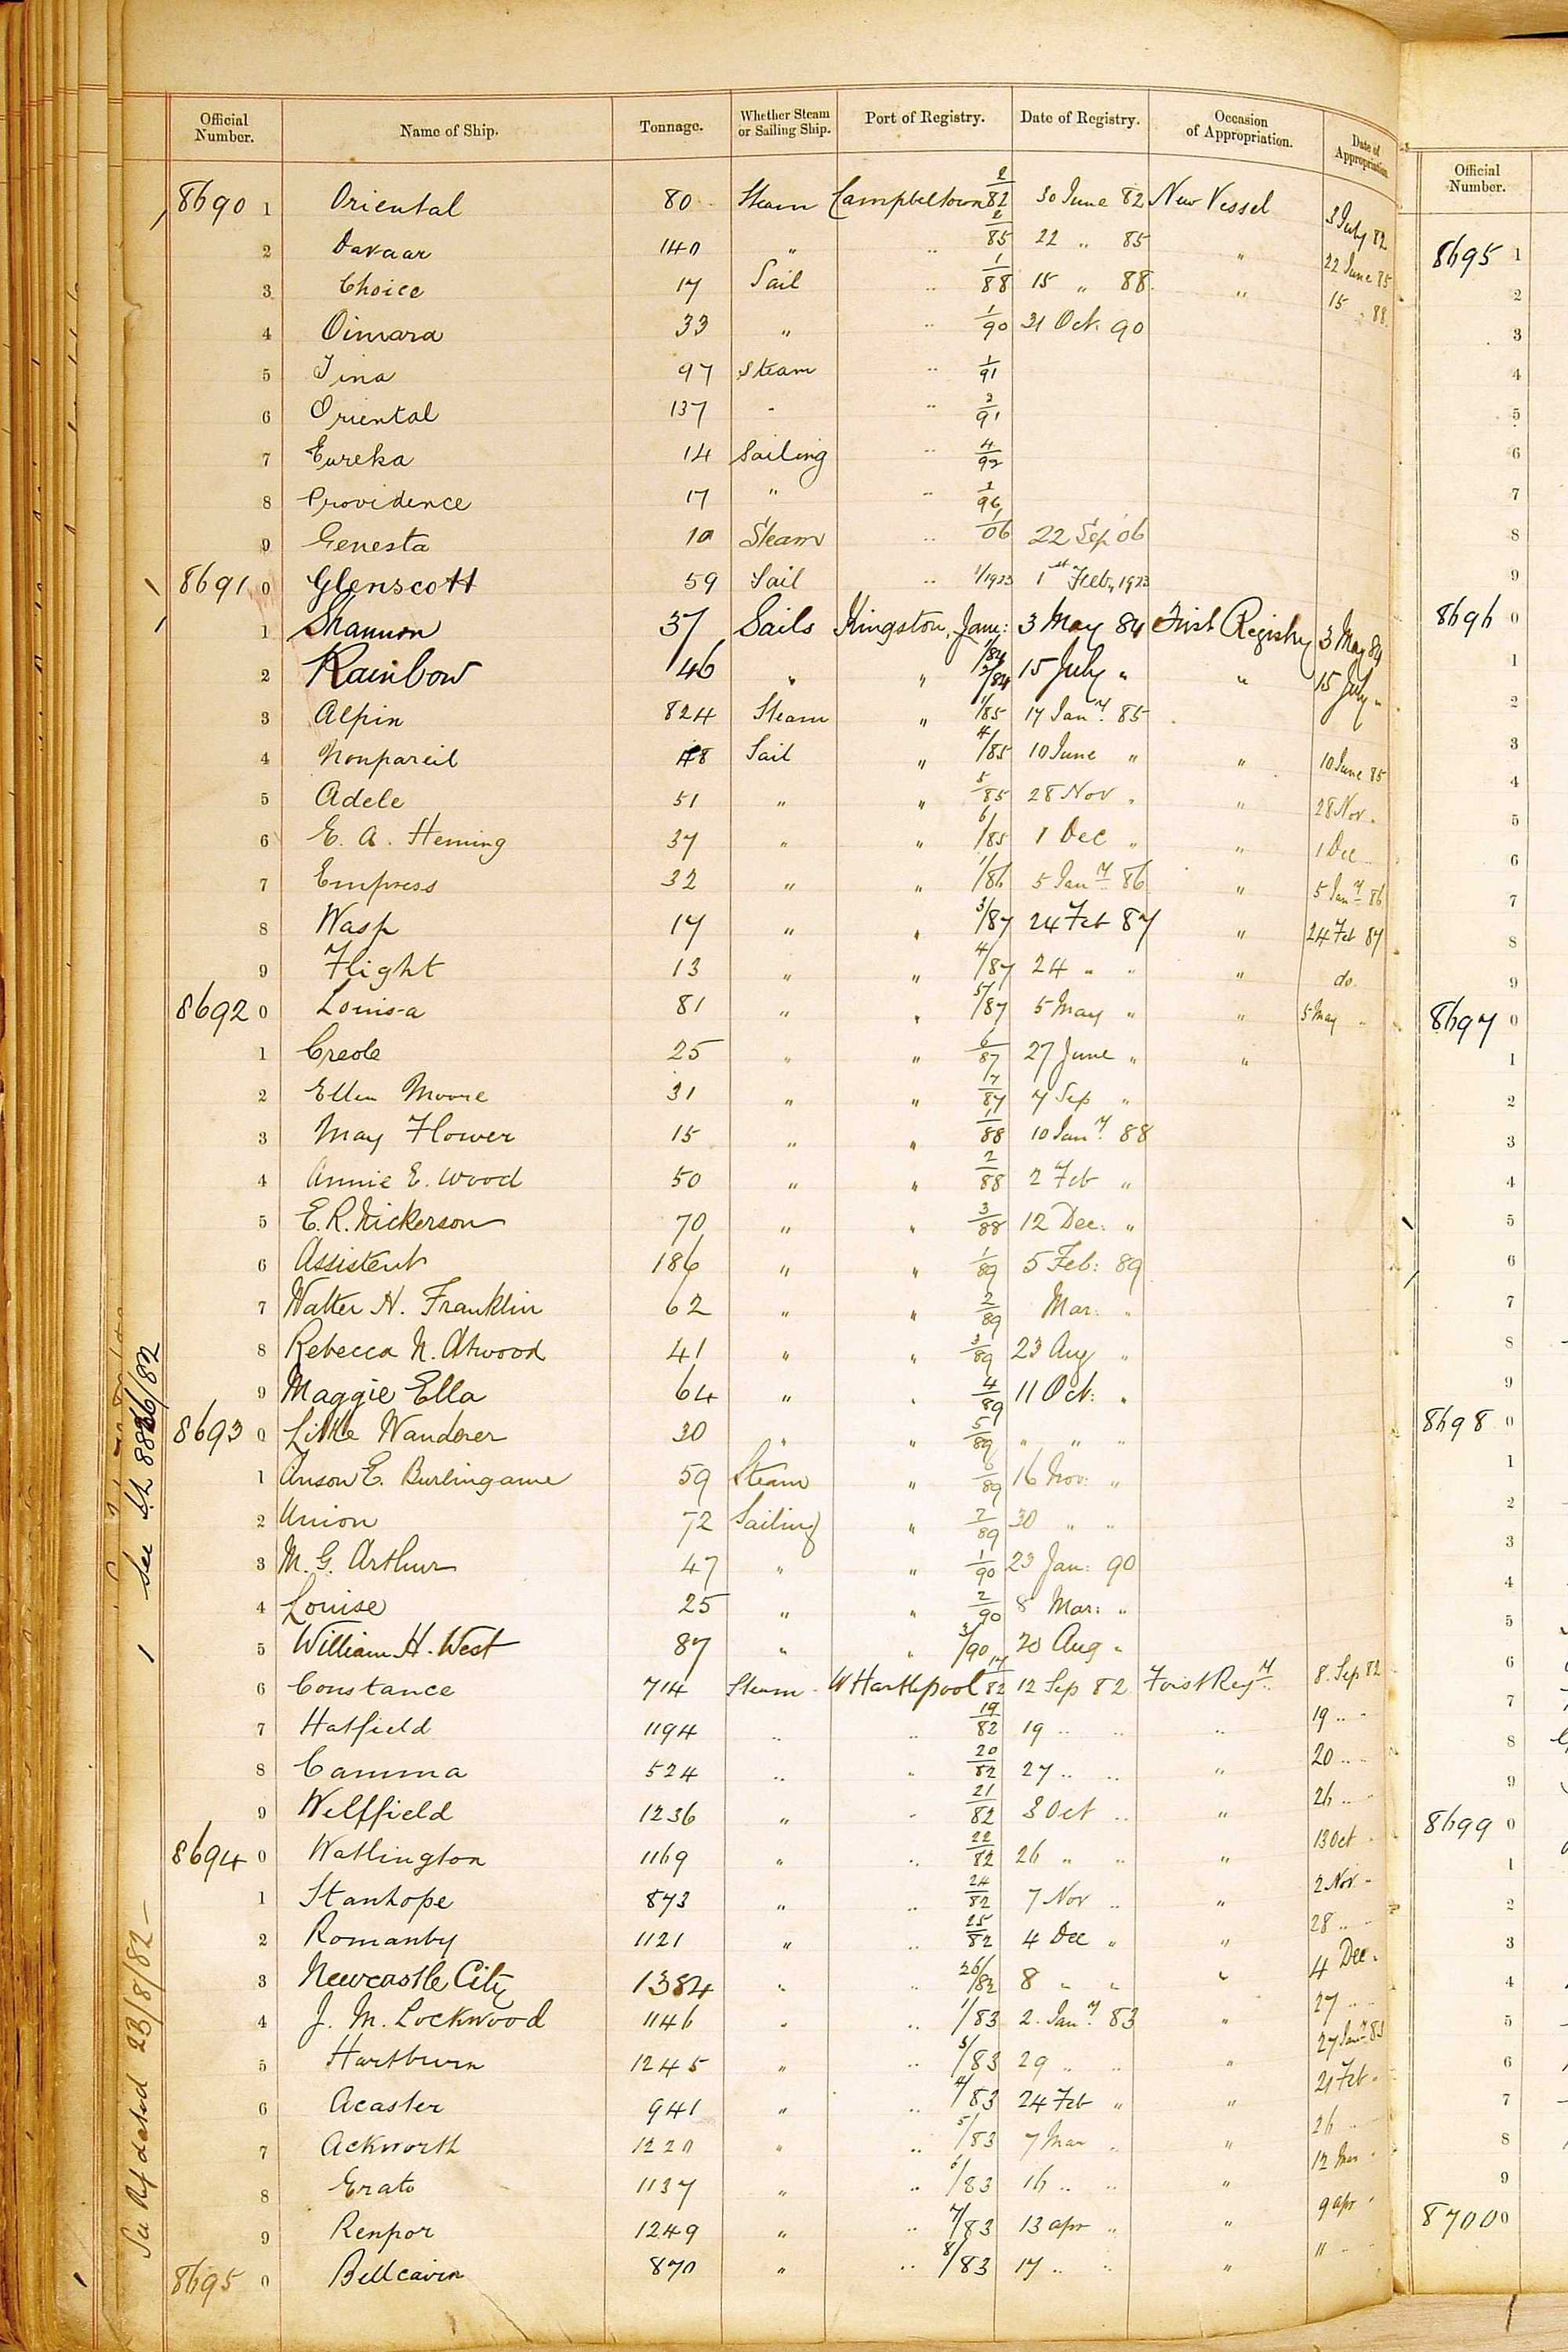 Official Number. Name of Ship. Tonnage. Whether Steam or Sailing Ship. Port of Registry. Date of Registry. Occasion of Appropriation. Date of Appropriation
8690 1 Oriental 80 Steam Campbeltown 2/82 30 June 82 New Vessel 3 July 82
2 Davaar 140 " " 2/85 22 " 85 " 22 June 85
3 Choice 17 Sail " 1/88 15 " 88 " 15 " 88
4 Oimara 33 " " 1/90 31 Oct. 90
5 Tina 97 Steam " 1/91
6 Oriental 137 " " 2/91
7 Eureka 14 Sailing " 4/92
8 Providence 17 " " 1/96
9 Genesta 10 Steam " 1/06 22 Sep 06
8691 0 Glenscott 59 Sail " 1/1923 1st Feb, 1923
1 Shannon 37 Sails Kingston, Jam: 1/84 3 May 84 First Registry 3 May 84
2 Rainbow 46 " " 2/84 15 July " " 15 July "
3 Alpin 824 Steam " 1/85 17 Jany. 85
4 Nonpareil 48 Sail " 4/85 10 June " " 10 June 85
5 Adele 51 " " 5/85 28 Nov " " 28 Nov "
6 E. A. Heming 37 " " 6/85 1 Dec " " 1 Dec "
7 Empress 32 " " 1/86 5 Jany 86 " 5 Jany 86
8 Wasp 17 " " 3/87 24 Feb 87 " 24 Feb 87
9 Flight 13 " " 4/87 24 " " " do.
8692 0 Louisa 81 " " 5/87 5 May " " 5 May "
1 Creole 25 " " 6/87 27 June " "
2 Ellen Moore 31 " " 17/87 7 Sep "
3 May Flower 15 " " 1/88 10 Jany. 88
4 Annie E. Wood 50 " " 2/88 2 Feb "
5 E. R. Nickerson 70 " " 3/88 12 Dec: "
6 Assistent 186 " " 1/89 5 Feb: 89
7 Walter H. Franklin 62 " " 2/89 Mar: "
8 Rebecca N. Atwood 41 " " 3/89 23 Aug "
9 Maggie Ella 64 " " 4/89 11 Oct: "
8693 0 Little Wanderer 30 " " 5/89 " " "
1 Anson E. Burlingame 59 Steam " 6/89 16 Nov: "
2 Union 72 Sailing " 7/89 30 " "
3 M. G. Arthur 47 " " 1/90 23 Jan: 90
4 Louise 25 " " 2/90 8 Mar: "
5 William H. West 87 " " 3/90 20 Aug "
6 Constance 714 Steam W Hartlepool 17/82 12 Sep 82 First Regy. 8 Sep 82
7 Hatfield 1194 " " 19/82 19 " " " 19 " "
8 Camma 524 " " 20/82 27 " " " 20 " "
9 Welffield 1236 " " 21/82 3 Oct " " 26 " "
8694 0 Watlington 1169 " " 22/82 26 " " " 13 Oct "
1 Stanhope 873 " " 24/82 7 Nov " " 2 Nov "
2 Romanby 1121 " " 25/82 4 Dec " " 28 " "
3 Newcastle City 1384 " " 26/82 8 " " " 4 Dec "
4 J. M. Lockwood 1146 " " 1/83 2. Jany. 83 " 27 " "
5 Hartburn 1245 " " 3/83 29 " " " 27 Jany 83
6 Acaster 941 " " 4/83 24 Feb " " 21 Feb "
7 Ackworth 1220 " " 5/83 7 Mar " " 26 " "
8 Erato 1137 " " 6/83 16 " " " 12 Mar "
9 Renpor 1249 " " 7/83 13 apr " " 9 apr "
8695 0 Bellcairn 870 " " 8/83 17 " " " 11 " "
See Ref dated 23/8/82
Official Number.
8695 1
2
3
4
5
6
7
8
9
8696 0
1
2
3
4
5
6
7
8
9
8697 0
1
2
3
4
5
6
7
8
9
8698 0
1
2
3
4
5
6
7
8
9
8699 0
1
2
3
4
5
6
7
8
9
8700 0